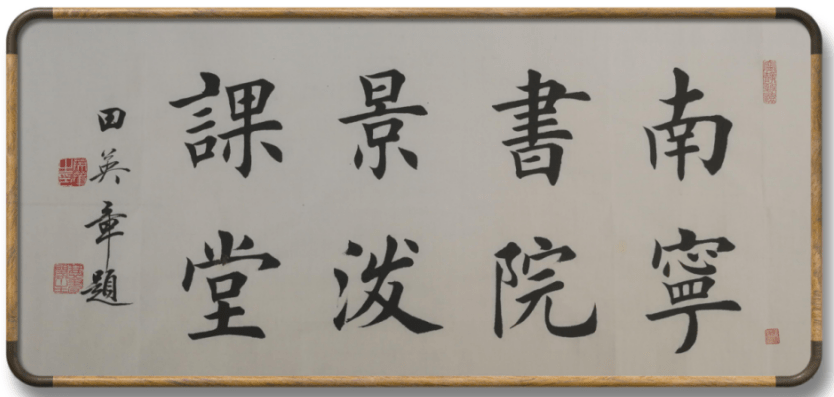 南寧
書院
景泼
課堂
田英章題